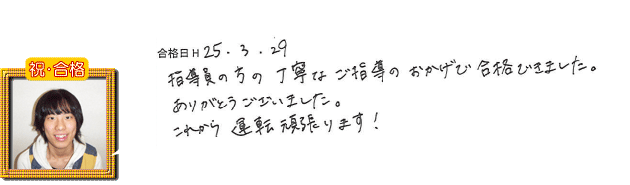 祝・合格
合格日H 25.3.29
指導員の方の丁寧なご指導のおかげで合格できました。
ありがとうございました。
これから運転頑張ります!